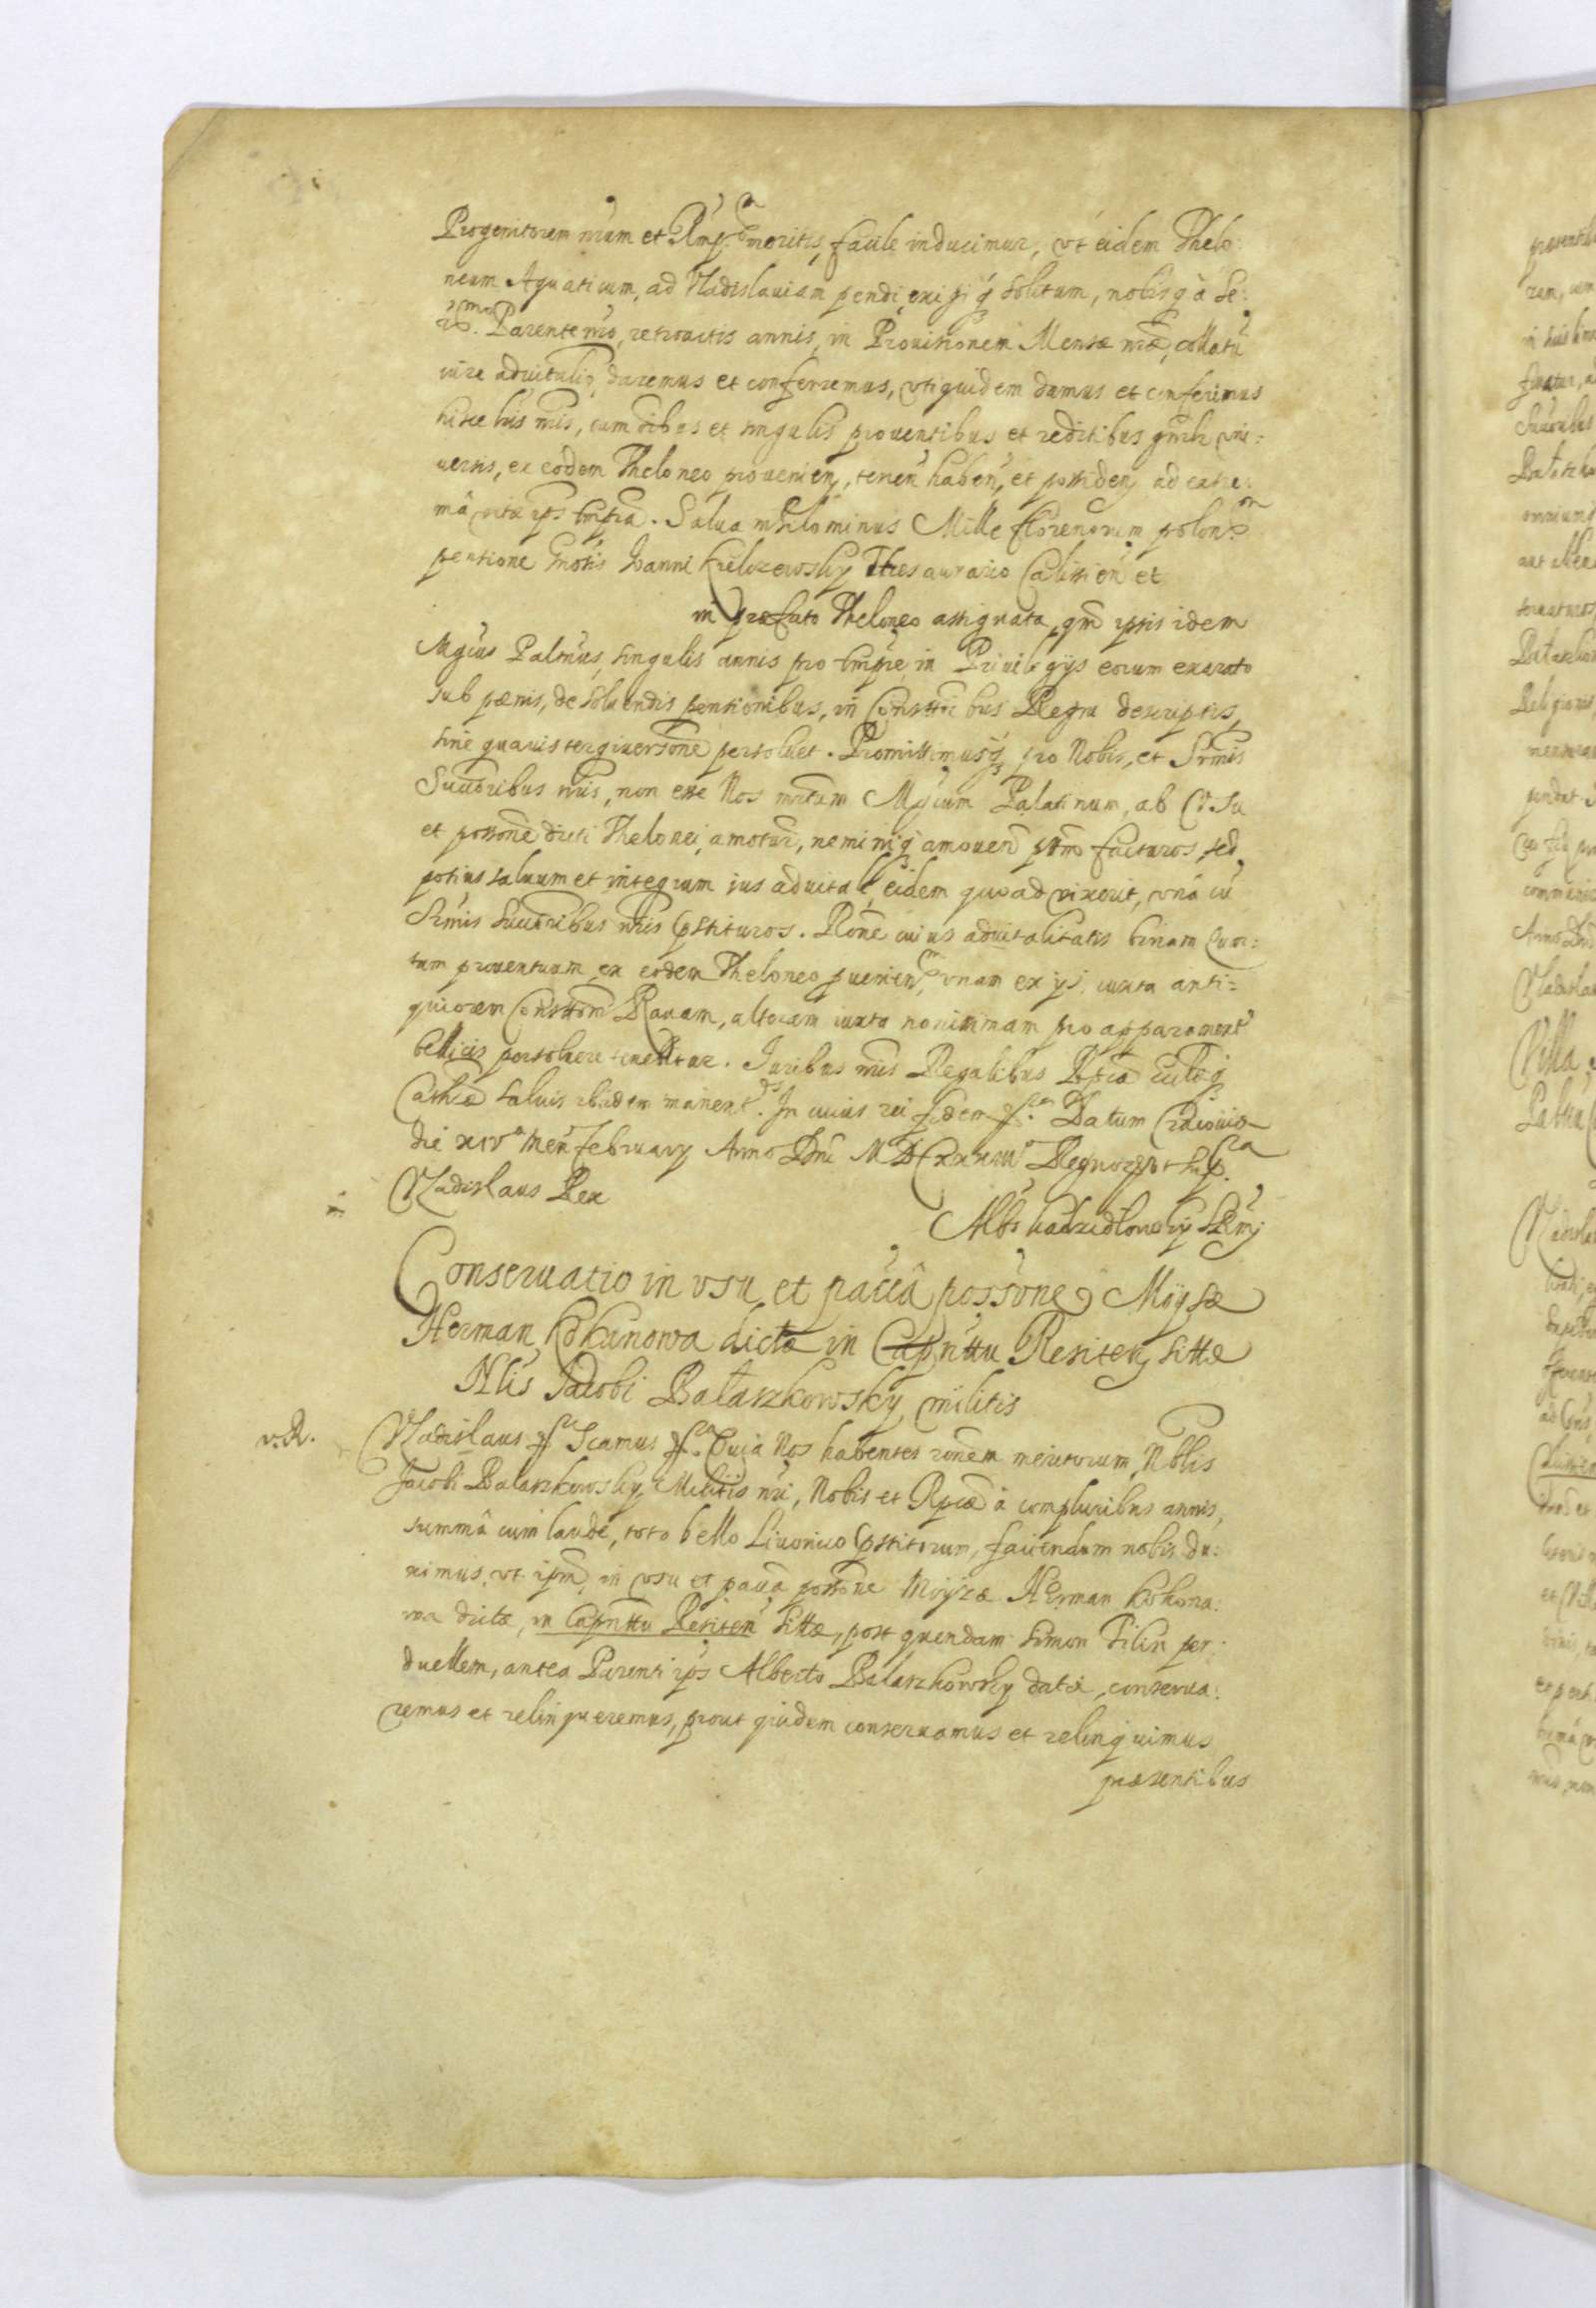 Progenitorem nrum et Rmp. meritis, facile inducimur, vt eidem Thelo:
neum Aquaticum, ad Vladislauiam pendi, exigiq solitum, nobisq à Se:
rmo. Parente nro, retroactis annis, in Prouisionem Mensæ nræ, collatu
iure aduitali daremus et conferremus, vti quidem damus et conferimus
hisce lris nris, cum oibus et singulis prouentibus et reditibus gnrlr vni:
uersis, ex eodem Theloneo prouenien, tenen haben, et possiden ad extre:
mâ vitæ ips tmpra. Salua nihilominus Mille florenorum polon.
pensione Gnosis Ioanni Thesaurario Calissien et
in præfato Theloneo assignata, qm ipsis idem
Mgcus Paltnus, singulis annis pro tmpre in Priuilegijs eorum exarato
sub pænis, de soluendis pensionibus, in Constnibus Regni descriptis,
sine quauis tergiuersone persoluet. Promittimusq pro Nobis, et Srmis
Succoribus nris, non esse Nos Mgcum Palatinum, ab Vsu
et possone dicti Thelonei, amoturos, neminiq amouen ptm facturos, sed
potius saluum et integrum ius aduitale, eidem quoad vixerit, vnà cu
Srmis Succoribus nris pstituros. Rone cuius aduitalitatis binam Quar:
tam prouentuum ex eodem Theloneo puenien, vnam ex ijs, iuxta anti=
quiorem Consttom Rauam, alteram iuxta nouissimam pro apparament
bellicis persoluere tenebitur. Iuribus nris Regalibus Rpcæ Ecclæq
Cathcæ saluis ibidem manent. In cuius rei fidem &. Datum Cracouiæ
die XIV Men February Anno Dni Regnor
Vladislaus Rex
Albs Kadzidlowsky SRmj
Conseruatio in vsu et paccâ possone Moysæ
Herman Kokanowa dictæ in Capnttu Resiten sittæ
Nlis Jacobi Balaszkowsky militis
v.R. Vladislaus & Scamus &. Quia Nos habentes ronem meritorum Nblis
Jacobi Balaszkowsky Militis nri, Nobis et Rpcæ à compluribus annis,
summâ cum laude, toto bello Liuonico pstitorum, faciendum nobis du:
ximus, vt ipm, in vsu et pacca possone Moyzæ Herman Kokona:
wa dictæ, in Capnttu Resiten sittæ, post quendam Simon Tilin per:
duellem, antea Parenti ips Alberto Balaszkowsky datæ, conserua:
remus et relinqueremus, prout quidem conseruamus et relinquimus
præsentibus